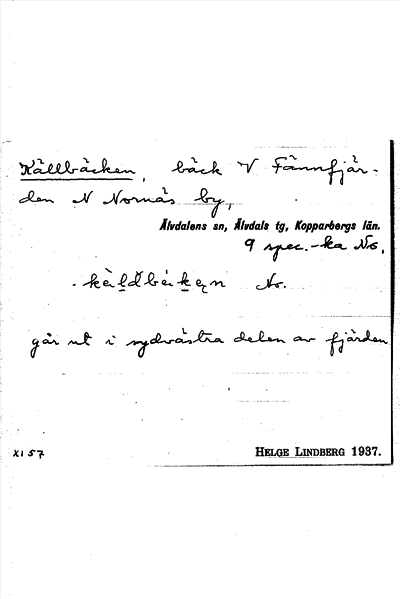 Källbäcken, bäck V Fännfjär-
den N Nornäs by,
Älvdalens sn, Älvdals tg, Kopparbergs län.
9 spec.-ka No,
No.
går ut i sydvästra delen av fjärden
XI 57
HELGE LINDBERG 1937.